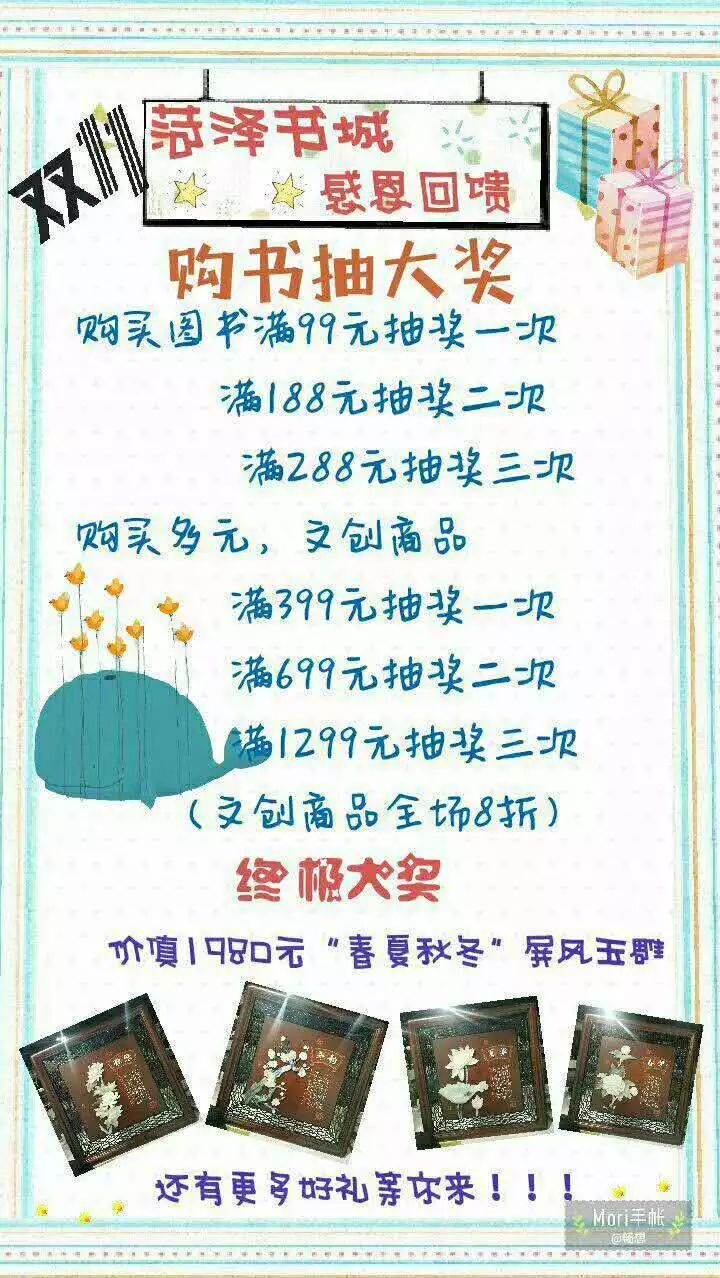 双11
菏泽书城
感恩回馈
购书抽大奖
购买图书满99元抽奖一次
满188元抽奖二次
满288元抽奖三次
购买多元，文创商品
满399元抽奖一次
满699元抽奖二次
满1299元抽奖三次
（文创商品全场8折）
终极大奖
价值1980元“春夏秋冬”屏风玉雕
还有更多好礼等你来！！！
Mori手帐